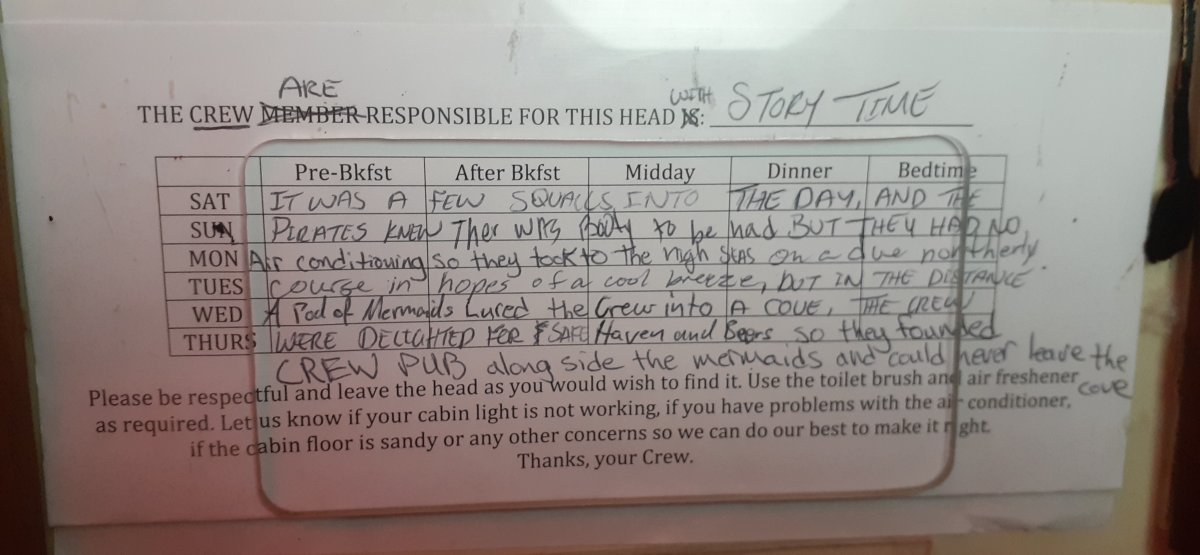 ARE
THE CREW MEMBER RESPONSIBLE FOR THIS HEAD IS: WITH STORY TIME
Pre-Bkfst After Bkfst Midday Dinner Bedtime
SAT IT WAS A FEW SQUALLS INTO THE DAY, AND THE
SUN PIRATES KNEW Ther WAS booty to be had BUT THEY HAD NO
MON Air conditioning so they took to the high SEAS on a due northerly
TUES course in hopes of a cool breeze, BUT IN THE DISTANCE
WED A Pod of Mermaids Lured the Crew into A COVE, THE CREW
THURS WERE DELIGHTED FER SAFE Haven and Beers so they founded
CREW PUB along side the mermaids and could never leave the
cove
Please be respectful and leave the head as you would wish to find it. Use the toilet brush and air freshener
as required. Let us know if your cabin light is not working, if you have problems with the air conditioner,
if the cabin floor is sandy or any other concerns so we can do our best to make it right.
Thanks, your Crew.